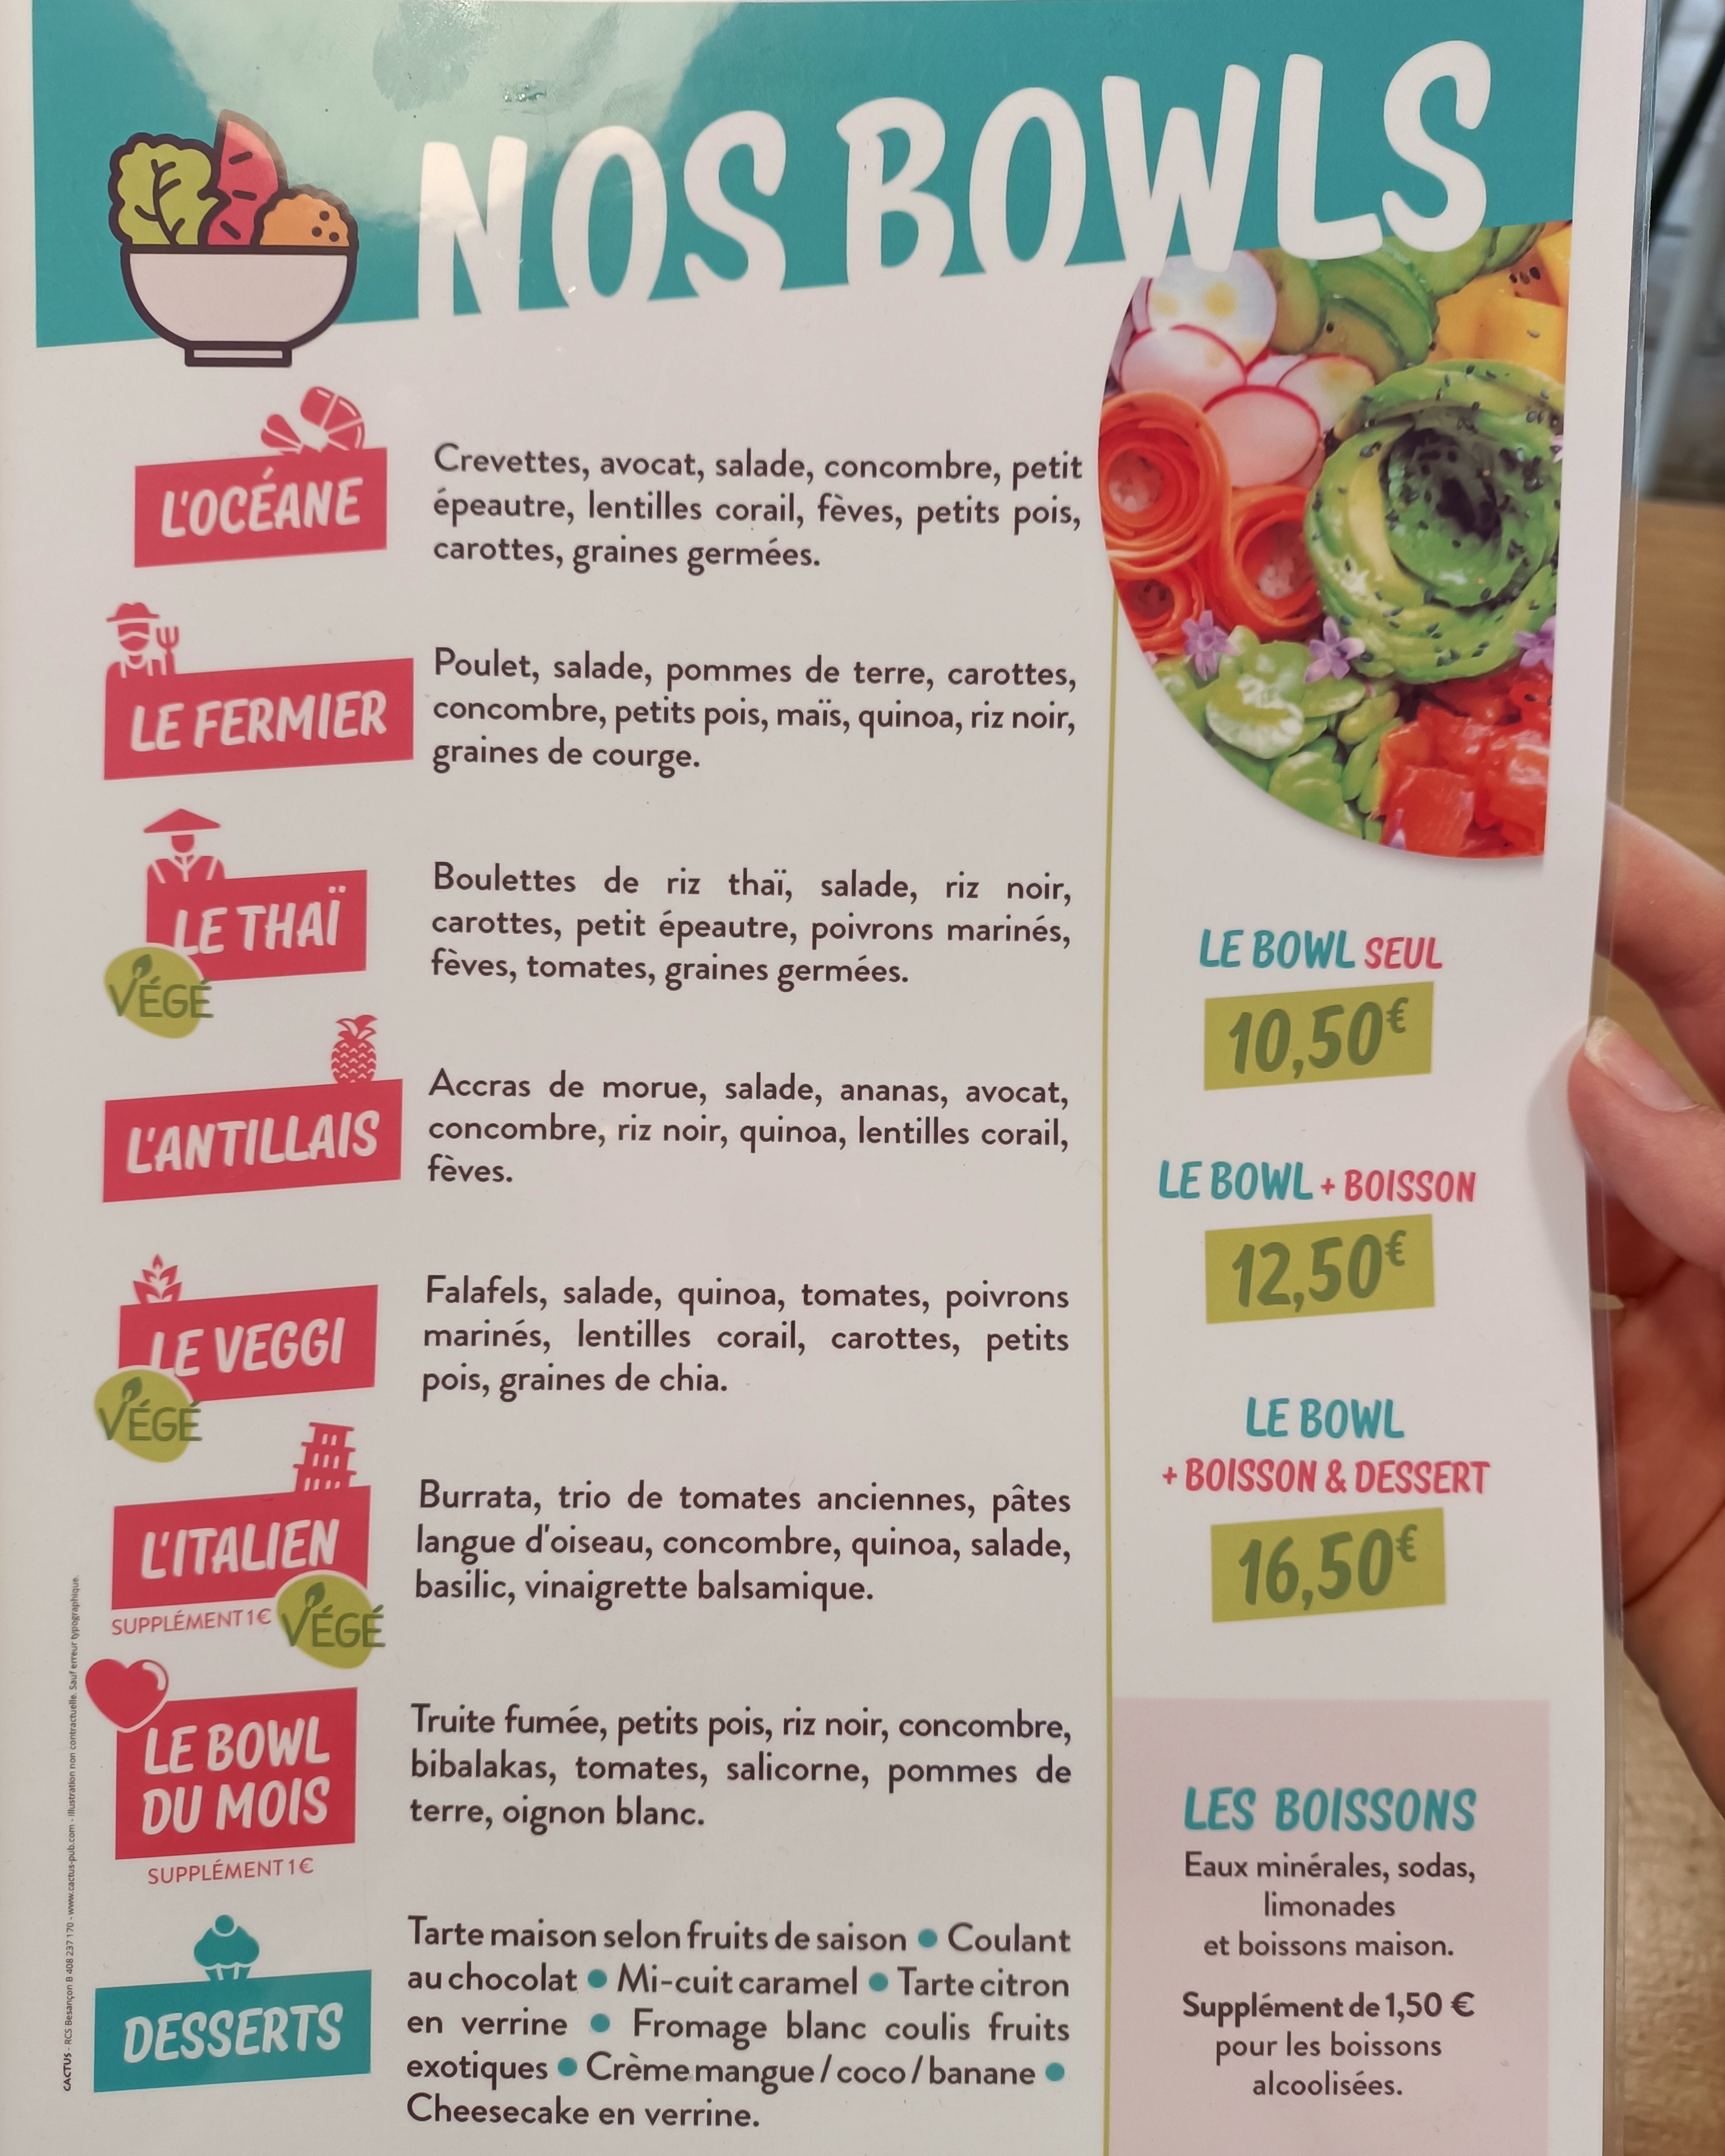 NOS BOWLS
L'OCÉANE
Crevettes, avocat, salade, concombre, petit
épeautre, lentilles corail, fèves, petits pois,
carottes, graines germées.
LE FERMIER
Poulet, salade, pommes de terre, carottes,
concombre, petits pois, maïs, quinoa, riz noir,
graines de courge.
LE THAÏ
VÉGÉ
Boulettes de riz thaï, salade, riz noir,
carottes, petit épeautre, poivrons marinés,
fèves, tomates, graines germées.
L'ANTILLAIS
Accras de morue, salade, ananas, avocat,
concombre, riz noir, quinoa, lentilles corail,
fèves.
LE VEGGI
VÉGÉ
Falafels, salade, quinoa, tomates, poivrons
marinés, lentilles corail, carottes, petits
pois, graines de chia.
L'ITALIEN
SUPPLÉMENT 1€
VÉGÉ
Burrata, trio de tomates anciennes, pâtes
langue d'oiseau, concombre, quinoa, salade,
basilic, vinaigrette balsamique.
LE BOWL
DU MOIS
SUPPLÉMENT 1€
Truite fumée, petits pois, riz noir, concombre,
bibalakas, tomates, salicorne, pommes de
terre, oignon blanc.
DESSERTS
Tarte maison selon fruits de saison ● Coulant
au chocolat ● Mi-cuit caramel ● Tarte citron
en verrine ● Fromage blanc coulis fruits
exotiques ● Crème mangue / coco / banane ●
Cheesecake en verrine.
LE BOWL SEUL
10,50€
LE BOWL + BOISSON
12,50€
LE BOWL
+ BOISSON & DESSERT
16,50€
LES BOISSONS
Eaux minérales, sodas,
limonades
et boissons maison.
Supplément de 1,50 €
pour les boissons
alcoolisées.
CACTUS - RCS Besançon B 408 237 170 - www.cactus-pub.com - Illustration non contractuelle. Sauf erreur typographique.